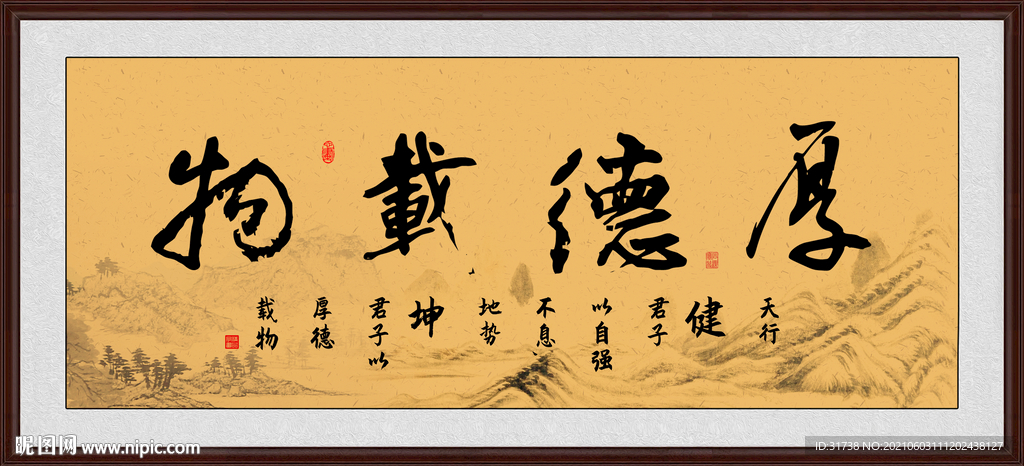 厚德載物
天行
健
君子
以自强
不息
地势
坤
君子以
厚德
载物
昵图网 www.nipic.com
ID:31738 NO:20210603111202438127